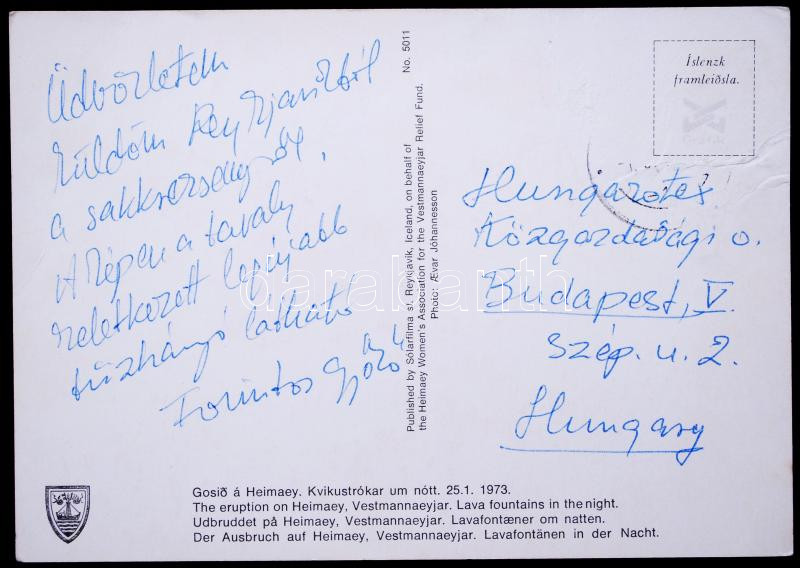 Üdvözletem
küldöm Reykjavikból
a sakkversenyről.
A képen a tavaly
keletkezett legújabb
tűzhányó látható
Forintos Győző
Published by Sólarfilma sf. Reykjavik, Iceland, on behalf of
the Heimaey Women's Association for the Vestmannaeyjar Relief Fund.
Photo: Ævar Jóhannesson
No. 5011
Íslenzk
framleiðsla.
Hungarotex
Közgazdasági o.
Budapest, V.
Szép. u. 2.
Hungary
darabanth
Gosið á Heimaey. Kvikustrókar um nótt. 25.1. 1973.
The eruption on Heimaey, Vestmannaeyjar. Lava fountains in the night.
Udbruddet på Heimaey, Vestmannaeyjar. Lavafontæner om natten.
Der Ausbruch auf Heimaey, Vestmannaeyjar. Lavafontänen in der Nacht.